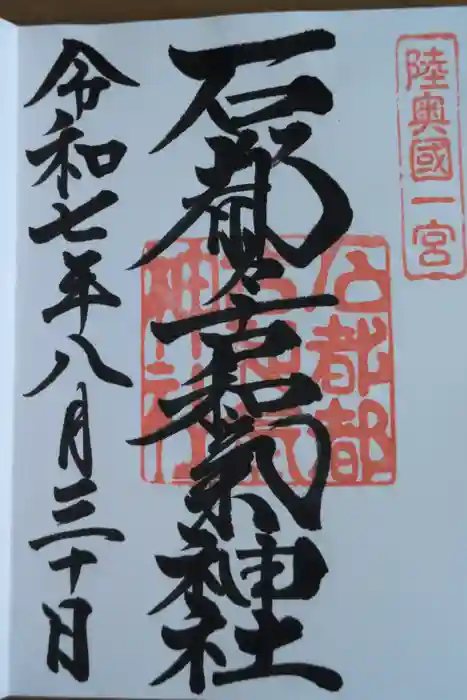 陸奥國一宮
石都々古和氣神社
石都都
古和氣
神社
令和七年八月三十日